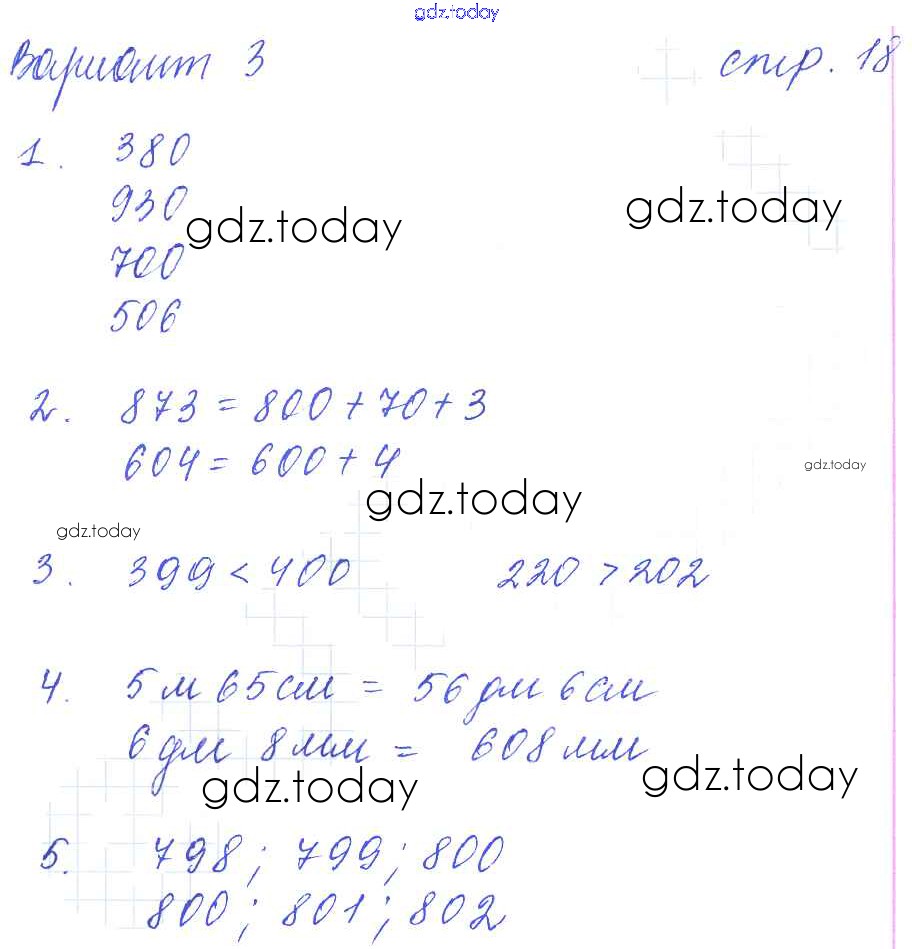 gdz.today
Вариант 3 стр. 18
1. 380
930
gdz.today gdz.today
700
506
2. 873 = 800 + 70 + 3
604 = 600 + 4
gdz.today
gdz.today
gdz.today
3. 399 < 400 220 > 202
4. 5 м 65 см = 56 дм 6 см
6 дм 8 мм = 608 мм
gdz.today gdz.today
5. 798; 799; 800
800; 801; 802